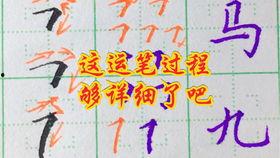 马
这运笔过程
够详细了吧
九